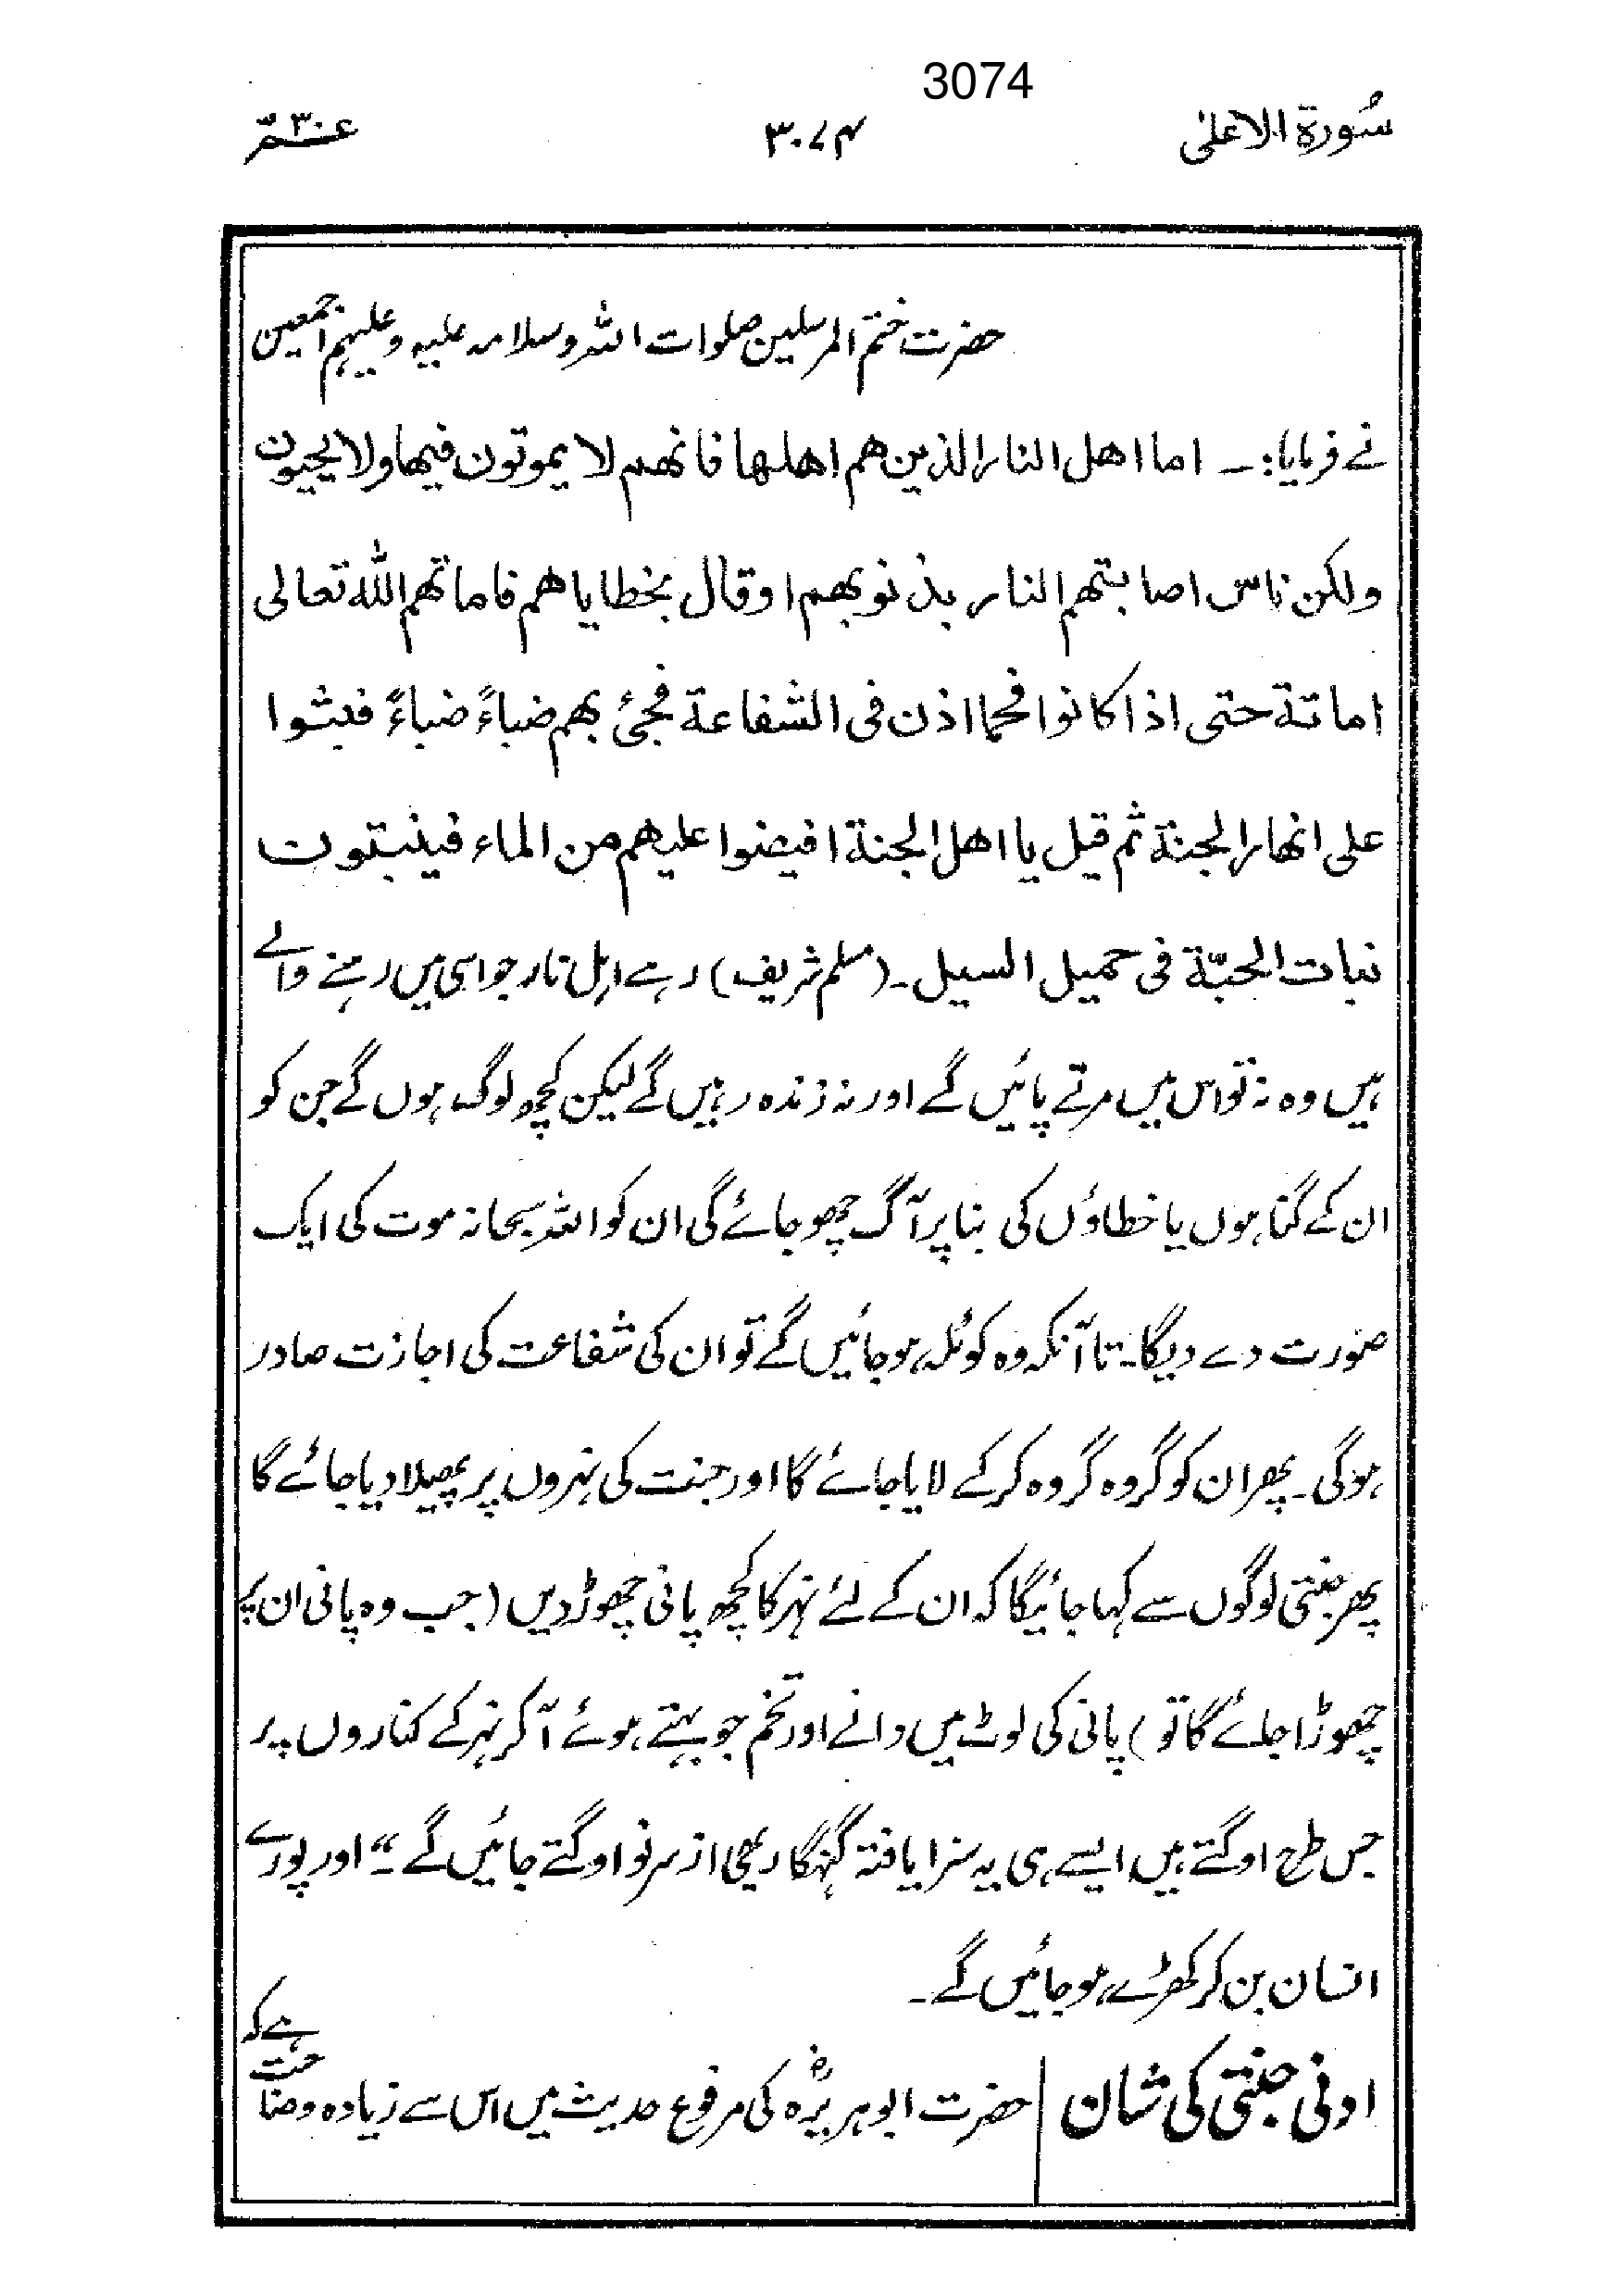 3074
سُورة الاعلیٰ ۳۰۷۴ عـمّ ۳۰
حضرت ختم المرسلین صلوات اللہ وسلامہ علیہ وعلیہم اجمعین
نے فرمایا:۔ اما اهل النار الذین هم اهلها فانهم لا یموتون فیها ولا یحیون
ولکن ناس اصابتهم النار بذنوبهم اوقال بخطایاهم فاماتهم الله تعالی
اماتة حتی اذا کانوا فحما اذن فی الشفاعة فجیٔ بهم ضباءً ضباءً فبثوا
علی انهار الجنة ثم قیل یا اهل الجنة افیضوا علیهم من الماء فینبتون
نبات الحبّة فی حمیل السیل۔ (مسلم شریف) رہے اہل نار جو اسی میں رہنے والے
ہیں وہ نہ تو اس میں مرتے پائیں گے اور نہ زندہ رہیں گے لیکن کچھ لوگ ہوں گے جن کو
ان کے گناہوں یا خطاؤں کی بنا پر آگ چھو جائے گی ان کو اللہ سبحانہ موت کی ایک
صورت دے دیگا۔ تا آنکہ وہ کوئلہ ہو جائیں گے تو ان کی شفاعت کی اجازت صادر
ہوگی۔ پھر ان کو گروہ گروہ کرکے لایا جائے گا اور جنت کی نہروں پر پھیلا دیا جائے گا
پھر جنتی لوگوں سے کہا جائیگا کہ ان کے لئے نہر کا کچھ پانی چھوڑ دیں (جب وہ پانی ان پر
چھوڑا جائے گا تو) پانی کی لوٹ میں دانے اور تخم جو بہتے ہوئے آکر نہر کے کناروں پر
جس طرح اوگتے ہیں ایسے ہی یہ سزا یافتہ گنہگار بھی از سر نو اوگتے جائیں گے ۔“ اور پورے
انسان بن کر کھڑے ہو جائیں گے۔
ادنی جنتی کی شان حضرت ابوہریرہؓ کی مرفوع حدیث میں اس سے زیادہ وضاحت ہے کہ